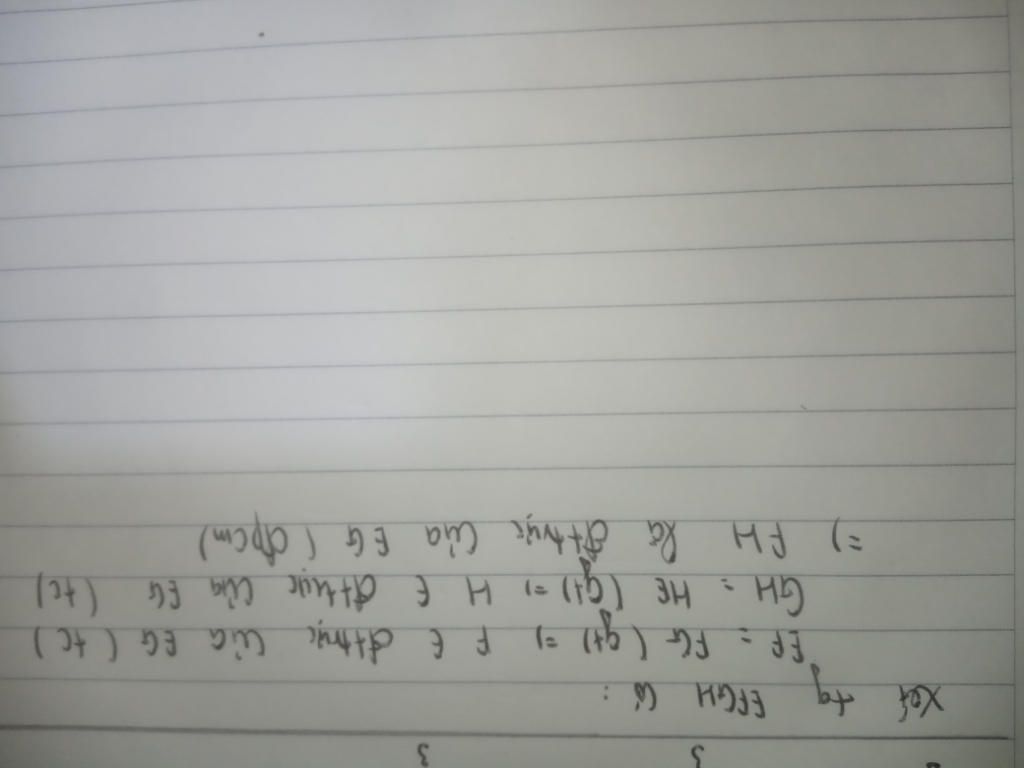 3 3
Xét tg EFGH có :
EF = FG (gt) => F ∈ đttrực của EG (tc)
GH = HE (gt) => H ∈ đttrực của EG (tc)
=) FH là đttrực của EG (đpcm)